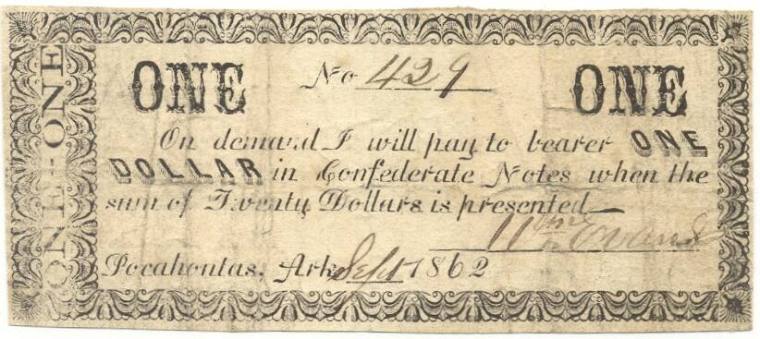 ONE--ONE
ONE No 429 ONE
On demand I will pay to bearer ONE
DOLLAR in Confederate Notes when the
sum of Twenty Dollars is presented—
Wm Evans
Pocahontas, Ark Sept 1862